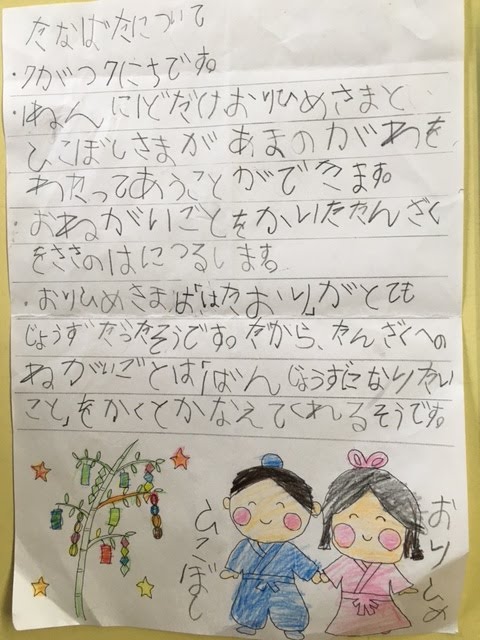 たなばたについて
・7がつ7にちです。
・1ねんに1どだけおりひめさまと
ひこぼしさまがあまのがわを
わたってあうことができます。
・おねがいごとをかいたたんざく
をささのはにつるします。
・おりひめさまは「はたおり」がとても
じょうずだったそうです。だから、たんざくへの
ねがいごとは「1ばんじょうずになりたい
こと」をかくとかなえてくれるそうです。
ひこぼし
おりひめ